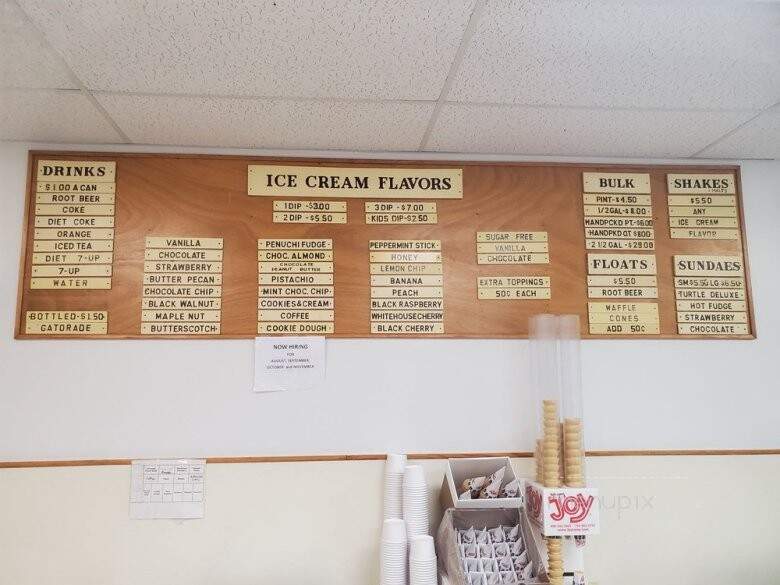 DRINKS
$1.00 A CAN
ROOT BEER
COKE
DIET COKE
ORANGE
ICED TEA
DIET 7-UP
7-UP
WATER
BOTTLED-$1.50
GATORADE
ICE CREAM FLAVORS
1 DIP-$3.00
2 DIP-$5.50
3 DIP-$7.00
KIDS DIP-$2.50
VANILLA
CHOCOLATE
STRAWBERRY
BUTTER PECAN
CHOCOLATE CHIP
BLACK WALNUT
MAPLE NUT
BUTTERSCOTCH
PENUCHI FUDGE
CHOC. ALMOND
CHOCOLATE
PEANUT BUTTER
PISTACHIO
MINT CHOC. CHIP
COOKIES&CREAM
COFFEE
COOKIE DOUGH
PEPPERMINT STICK
HONEY
LEMON CHIP
BANANA
PEACH
BLACK RASPBERRY
WHITEHOUSECHERRY
BLACK CHERRY
SUGAR FREE
VANILLA
CHOCOLATE
EXTRA TOPPINGS
50¢ EACH
BULK
PINT-$4.50
1/2 GAL-$11.00
HANDPCKD PT-$6.00
HANDPCKD QT $8.00
2 1/2 GAL-$29.00
FLOATS
$5.50
ROOT BEER
WAFFLE
CONES
ADD 50¢
SHAKES
$5.50
ANY
ICE CREAM
FLAVOR
SUNDAES
SM $5.50 LG $6.50
TURTLE DELUXE
HOT FUDGE
STRAWBERRY
CHOCOLATE
NOW HIRING
FOR
AUGUST, SEPTEMBER,
OCTOBER and NOVEMBER
JOY